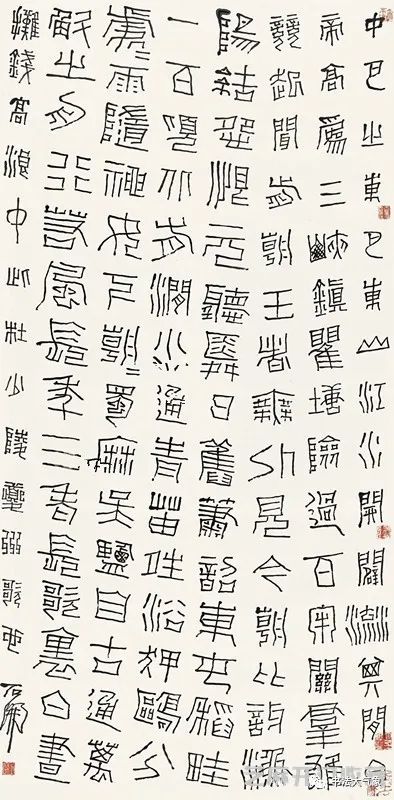 中巴之東巴東山江水開闢流其間白
帝高為三峽鎮瞿塘險過百牢關羣雄
競起聞前朝王者無外見今朝比訝漁
陽結怨恨元聽舜日舊簫韶東屯稻畦
一百頃北有澗水通青苗晴浴狎鷗分
處=雨隨神女下朝=蜀麻吳鹽自古通萬
斛之舟行若風長年三老長歌裏白晝
攤錢高浪中此杜少陵夔州歌也石開
书法大气象